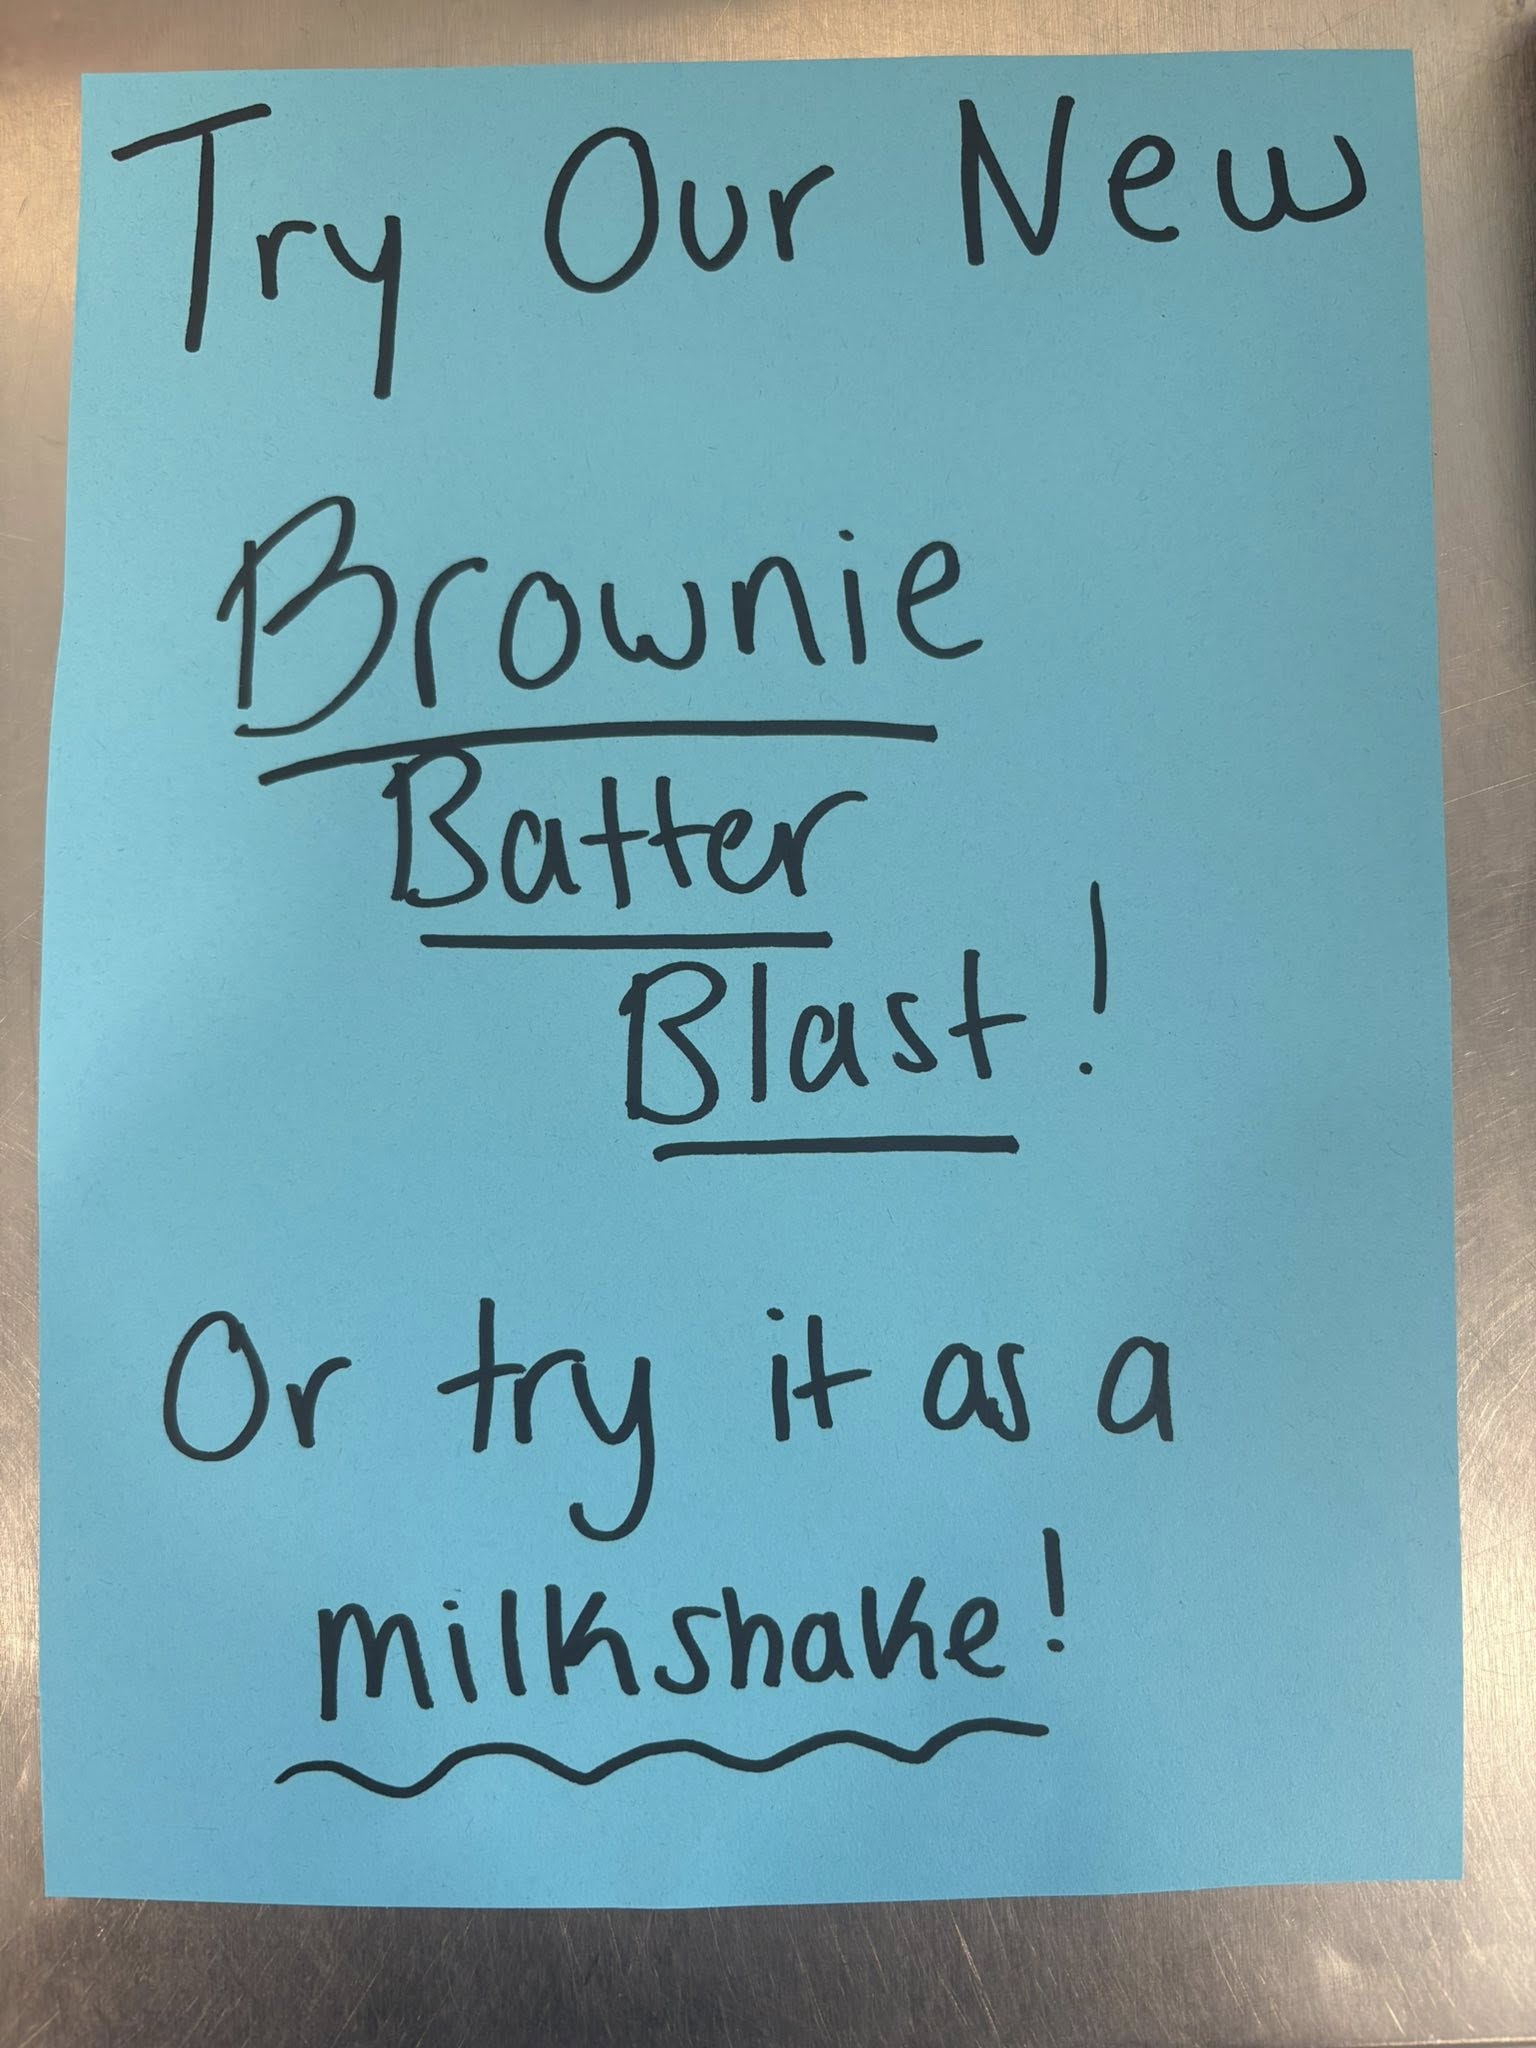 Try Our New
Brownie
Batter
Blast!
Or try it as a
milkshake!